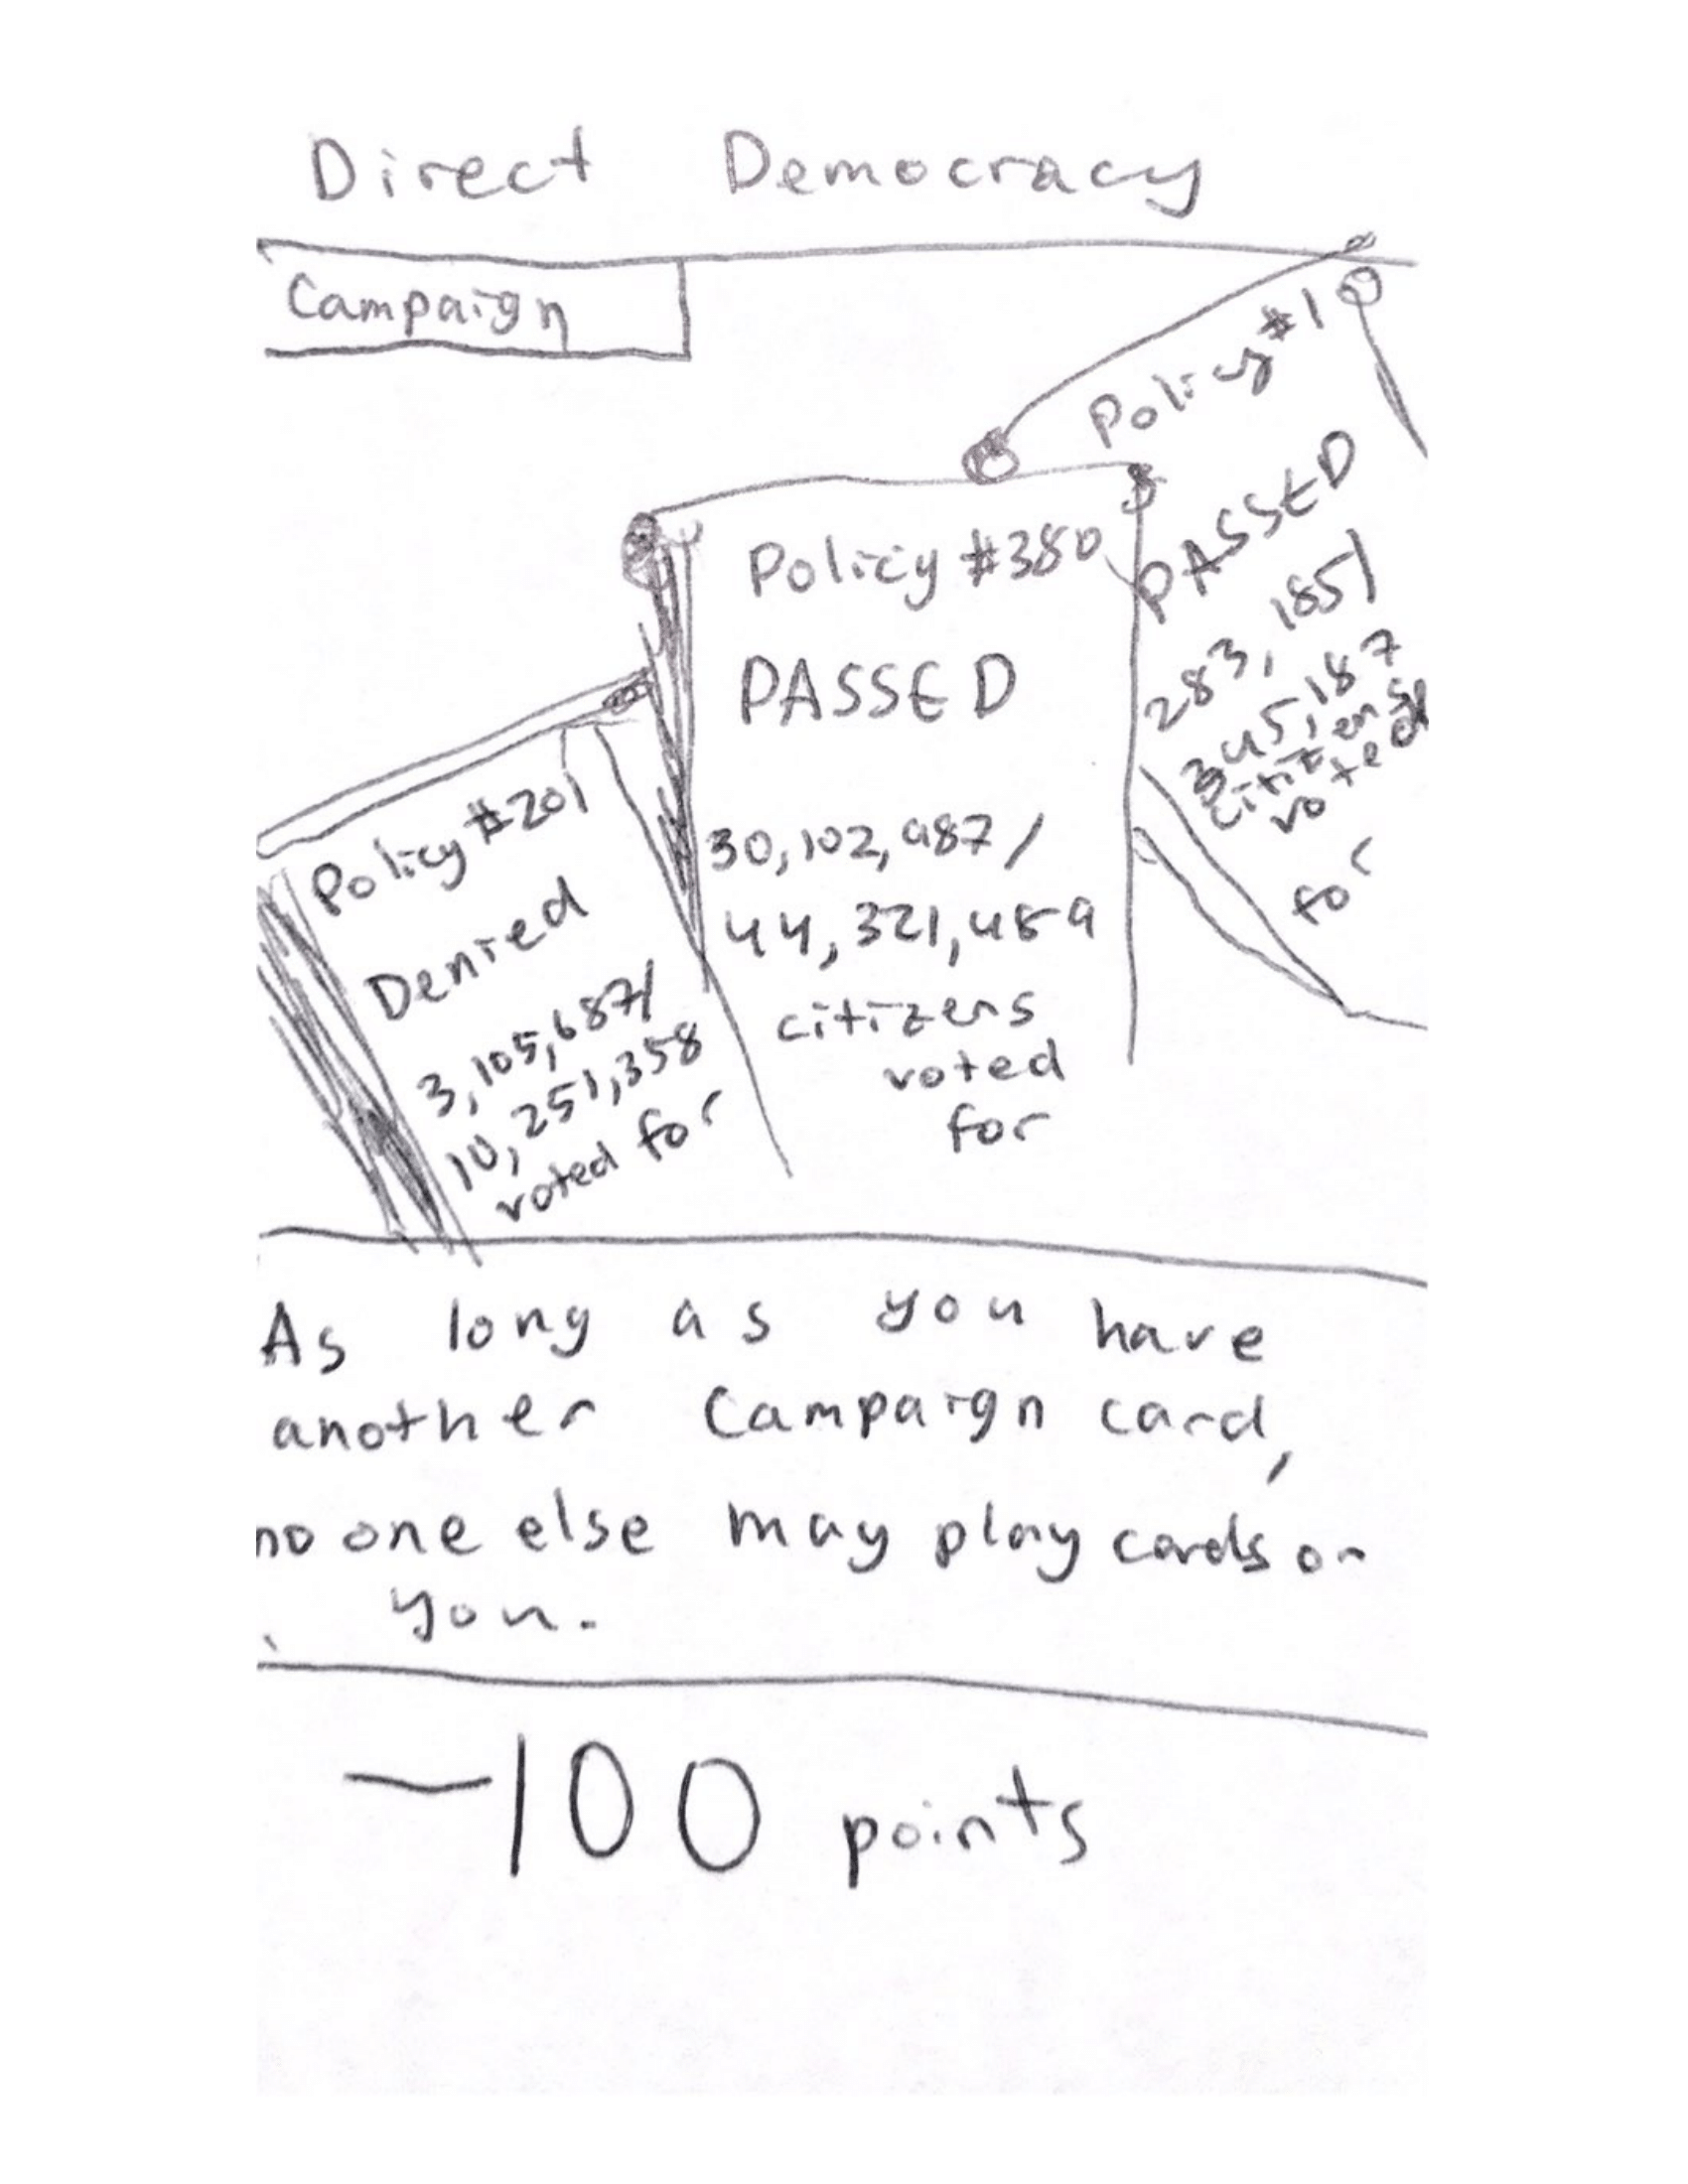 Direct Democracy
Campaign
Policy #1
PASSED
283,185/
345,187
citizens
voted
for
Policy #380
PASSED
30,102,987/
44,321,489
citizens
voted
for
Policy #201
Denied
3,105,687/
10,251,358
voted for
As long as you have
another Campaign card,
no one else may play cards on
you.
-100 points